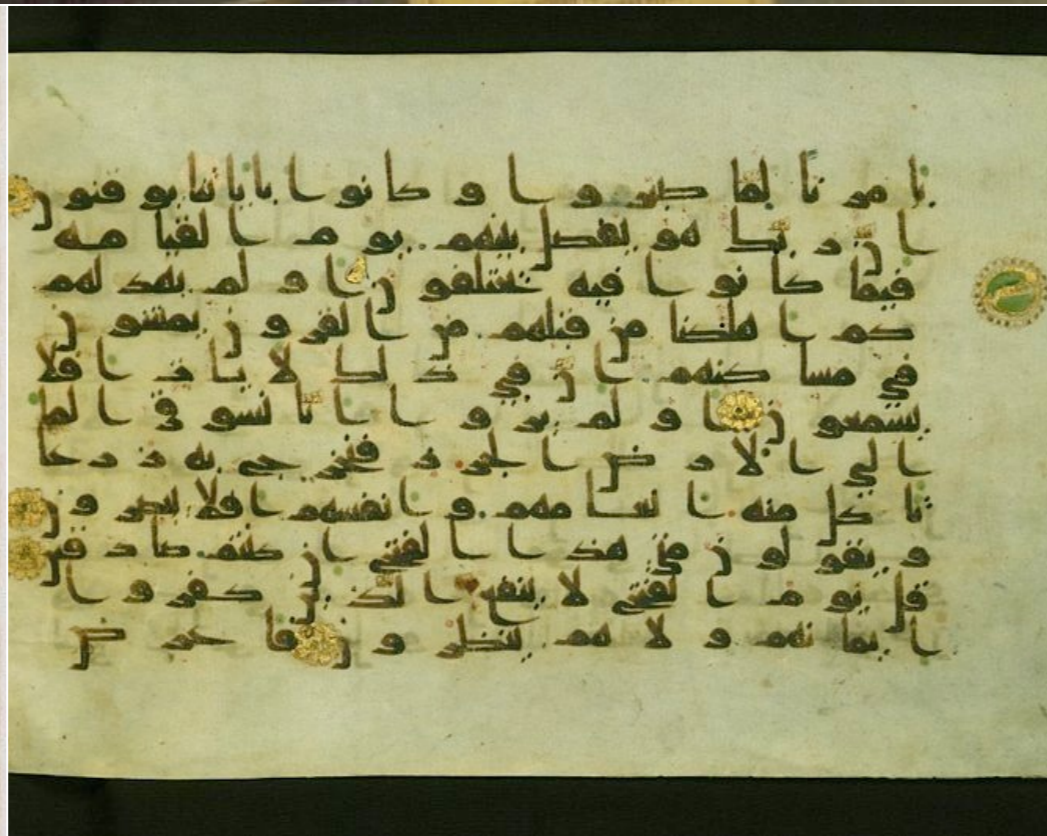 بامرنا لما صبروا وكانوا باياتنا يوقنون
ان ربك هو يفصل بينهم يوم القيامه
فيما كانوا فيه يختلفون اولم يهد لهم
كم اهلكنا من قبلهم من القرون يمشون
في مساكنهم ان في ذلك لايات افلا
يسمعون اولم يروا انا نسوق الما
الي الارض الجرز فنخرج به زرعا
تاكل منه انعامهم وانفسهم افلا يبصرون
ويقولون متي هذا الفتح ان كنتم صادقين
قل يوم الفتح لا ينفع الذين كفروا
ايمانهم ولا هم ينظرون فاعرض